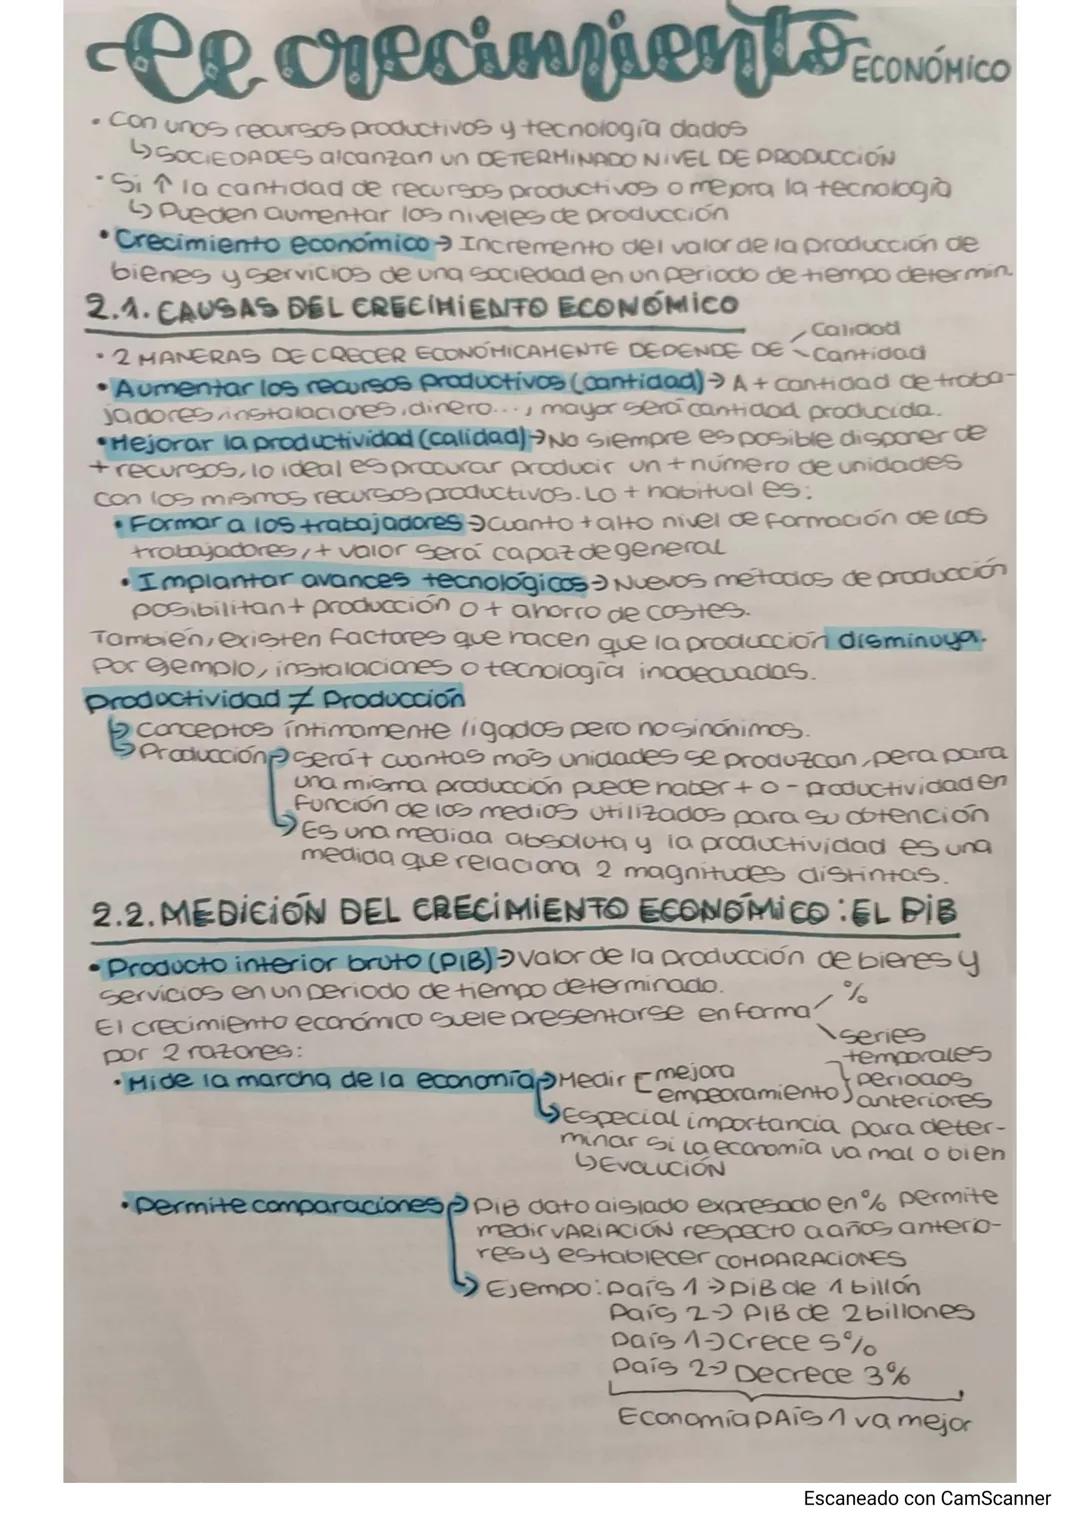 El crecimiento ECONÓMICO
• Con unos recursos productivos y tecnología dados
↳ SOCIEDADES alcanzan un DETERMINADO NIVEL DE PRODUCCIÓN
• Si ↑ la cantidad de recursos productivos o mejora la tecnología
↳ Pueden aumentar los niveles de producción
• Crecimiento económico → Incremento del valor de la producción de
bienes y servicios de una sociedad en un periodo de tiempo determin.
2.1. CAUSAS DEL CRECIMIENTO ECONÓMICO
• 2 MANERAS DE CRECER ECONÓMICAMENTE DEPENDE DE Calidad
Cantidad
• Aumentar los recursos productivos (cantidad) → A + cantidad de traba-
jadores, instalaciones, dinero..., mayor será cantidad producida.
• Mejorar la productividad (calidad) → No siempre es posible disponer de
+ recursos, lo ideal es procurar producir un + número de unidades
con los mismos recursos productivos. Lo + habitual es:
• Formar a los trabajadores → cuanto + alto nivel de formación de los
trabajadores, + valor será capaz de general
• Implantar avances tecnológicos → Nuevos métodos de producción
posibilitan + producción o + ahorro de costes.
También, existen factores que hacen que la producción disminuya.
Por ejemplo, instalaciones o tecnología inadecuadas.
Productividad ≠ Producción
↳ Conceptos íntimamente ligados pero no sinónimos.
↳ Producción → será + cuantas más unidades se produzcan, pero para
una misma producción puede haber + o - productividad en
función de los medios utilizados para su obtención
↳ Es una medida absoluta y la productividad es una
medida que relaciona 2 magnitudes distintas.
2.2. MEDICIÓN DEL CRECIMIENTO ECONÓMICO: EL PIB
• Producto interior bruto (PIB) → Valor de la producción de bienes y
servicios en un periodo de tiempo determinado.
El crecimiento económico suele presentarse en forma %
series
temporales
por 2 razones:
• Mide la marcha de la economía → Medir mejora
empeoramiento
periodos
anteriores
↳ Especial importancia para deter-
minar si la economía va mal o bien
↳ EVOLUCIÓN
• Permite comparaciones → PIB dato aislado expresado en % permite
medir VARIACIÓN respecto a años anterio-
res y establecer COMPARACIONES
↳ Ejempo: País 1 → PIB de 1 billón
País 2 → PIB de 2 billones
País 1 → Crece 5%
País 2 → Decrece 3%
Economía PAÍS 1 va mejor
Escaneado con CamScanner